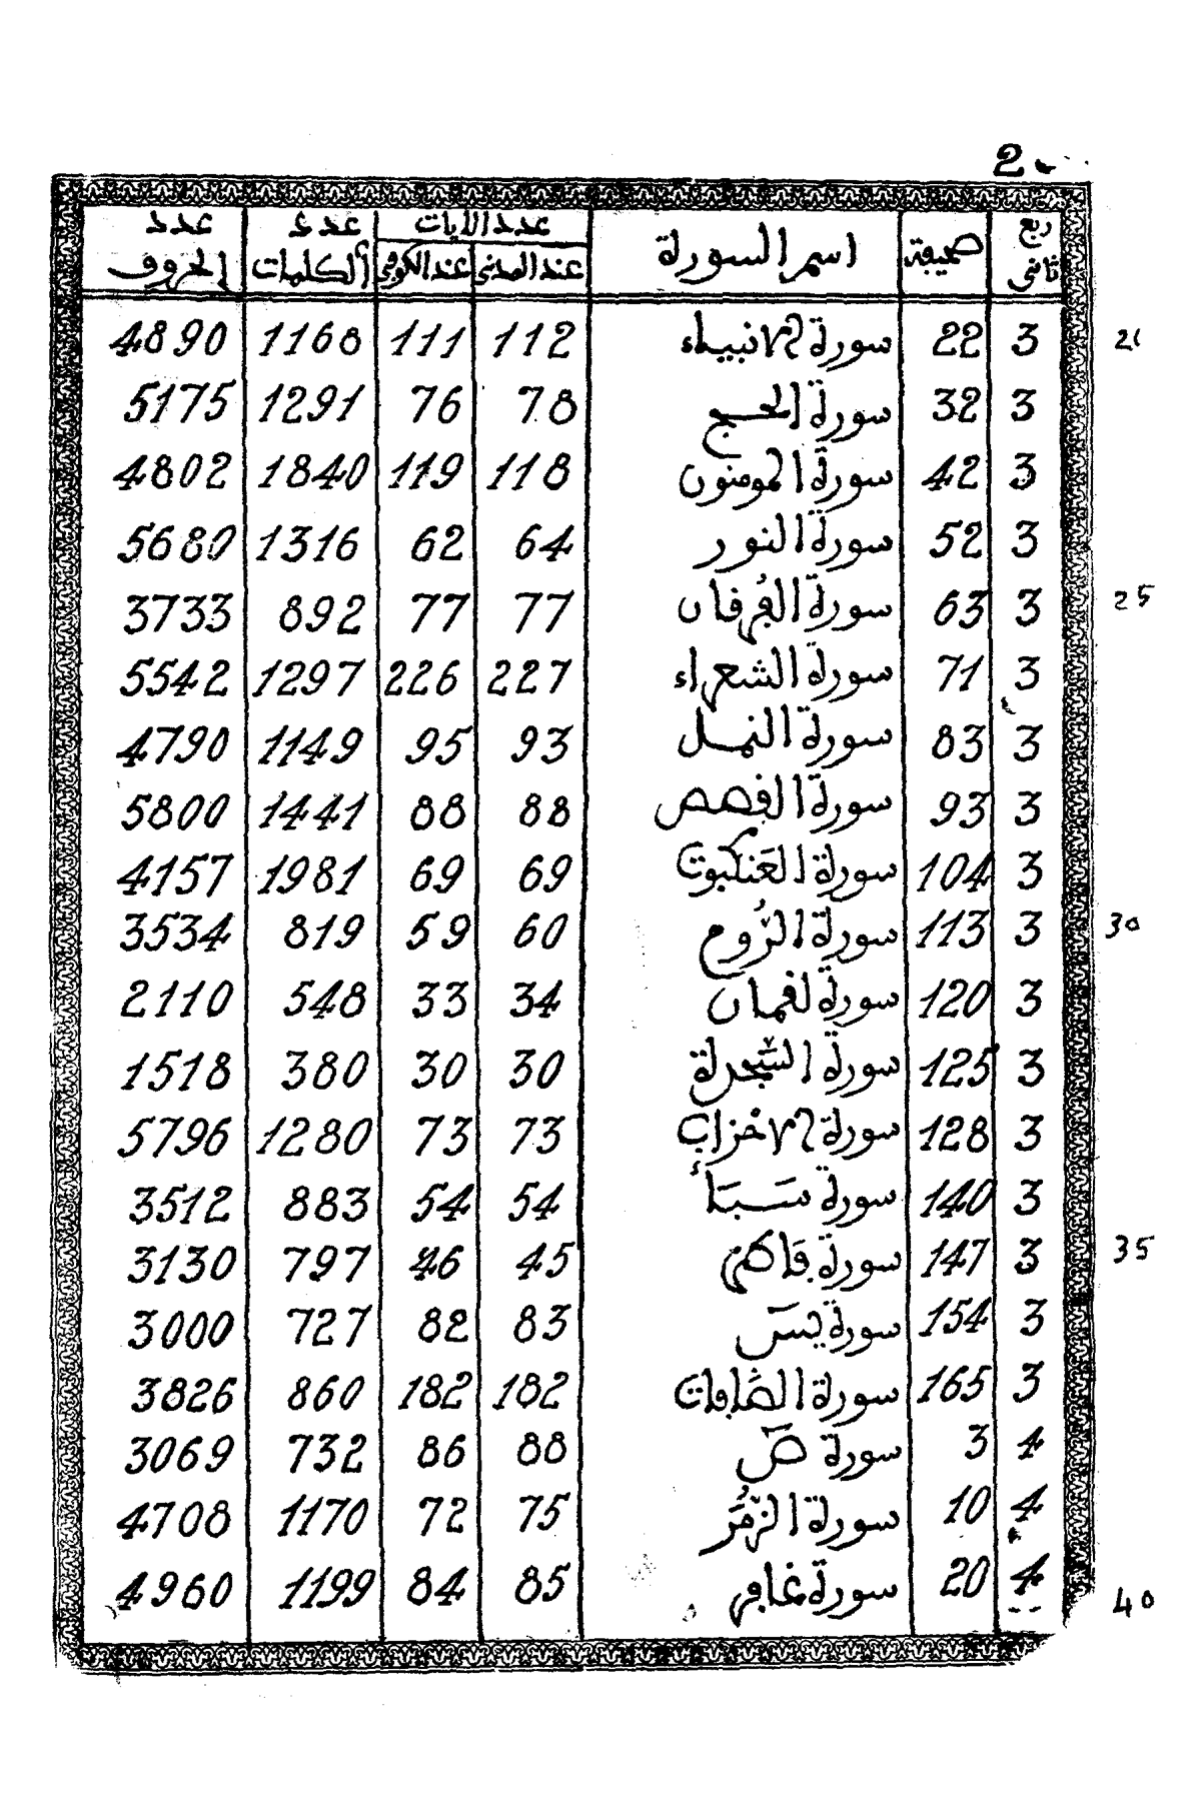 2
ربع ثاني صحيفة اسم السورة عدد الايات عدد الكلمات عدد الحروف
عند المدني عند الكوفي
3 22 سورة الانبياء 112 111 1168 4890 21
3 32 سورة الحج 78 76 1291 5175
3 42 سورة المومنون 118 119 1840 4802
3 52 سورة النور 64 62 1316 5680
3 63 سورة الفرقان 77 77 892 3733 25
3 71 سورة الشعراء 227 226 1297 5542
3 83 سورة النمل 93 95 1149 4790
3 93 سورة القصص 88 88 1441 5800
3 104 سورة العنكبوت 69 69 1981 4157
3 113 سورة الرُّوم 60 59 819 3534 30
3 120 سورة لقمان 34 33 548 2110
3 125 سورة السَّجدة 30 30 380 1518
3 128 سورة الاحزاب 73 73 1280 5796
3 140 سورة سَبَأ 54 54 883 3512
3 147 سورة فاطر 45 46 797 3130 35
3 154 سورة يسٓ 83 82 727 3000
3 165 سورة الصَّافات 182 182 860 3826
4 3 سورة صٓ 88 86 732 3069
4 10 سورة الزُّمَر 75 72 1170 4708
4 20 سورة غافر 85 84 1199 4960 40